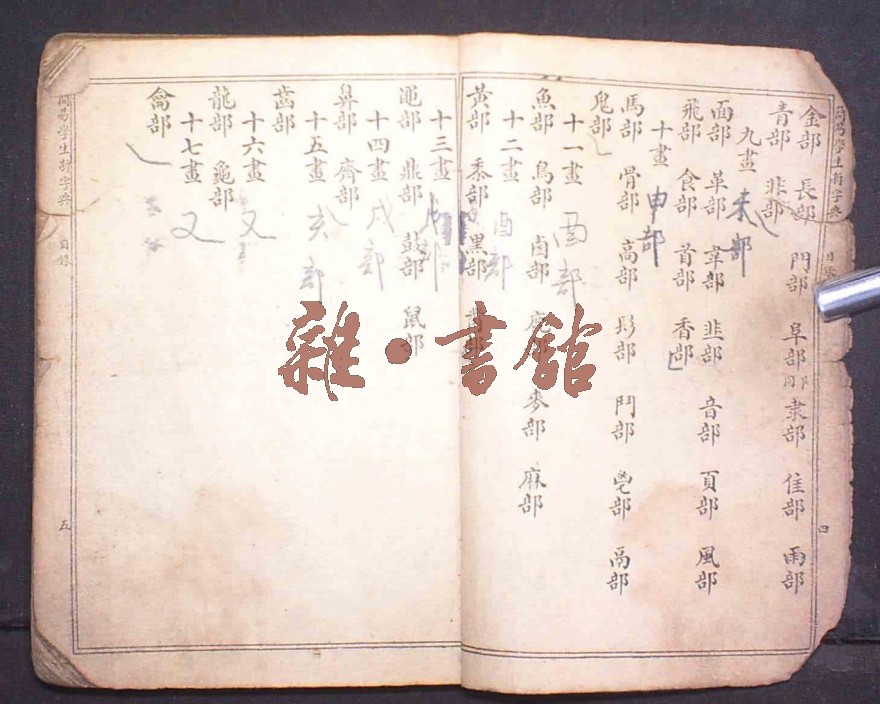 金部 長部 門部 阜部 隶部 隹部 雨部
青部 非部
九畫
面部 革部 韋部 韭部 音部 頁部 風部
飛部 食部 首部 香部
十畫
馬部 骨部 高部 髟部 鬥部 鬯部 鬲部
鬼部
十一畫
魚部 鳥部 鹵部 鹿部 麥部 麻部
十二畫
黃部 黍部 黑部 黹部
十三畫
黽部 鼎部 鼓部 鼠部
十四畫
鼻部 齊部
十五畫
齒部
十六畫
龍部 龜部
十七畫
龠部
未部
申部
酉部
酉部
戌部
亥部
又
又
簡易學生新字典 目錄 四
簡易學生新字典 目錄 五
雜·書館